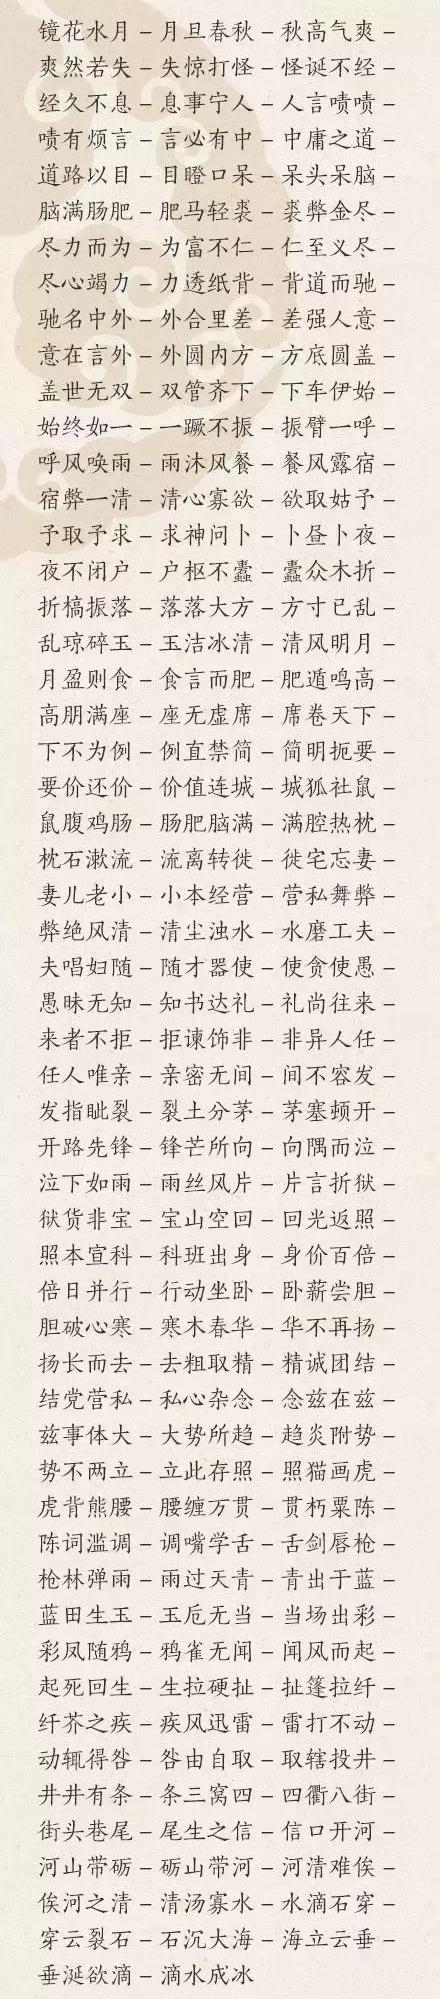 镜花水月 – 月旦春秋 – 秋高气爽 –
爽然若失 – 失惊打怪 – 怪诞不经 –
经久不息 – 息事宁人 – 人言啧啧 –
啧有烦言 – 言必有中 – 中庸之道 –
道路以目 – 目瞪口呆 – 呆头呆脑 –
脑满肠肥 – 肥马轻裘 – 裘弊金尽 –
尽力而为 – 为富不仁 – 仁至义尽 –
尽心竭力 – 力透纸背 – 背道而驰 –
驰名中外 – 外合里差 – 差强人意 –
意在言外 – 外圆内方 – 方底圆盖 –
盖世无双 – 双管齐下 – 下车伊始 –
始终如一 – 一蹶不振 – 振臂一呼 –
呼风唤雨 – 雨沐风餐 – 餐风露宿 –
宿弊一清 – 清心寡欲 – 欲取姑予 –
予取予求 – 求神问卜 – 卜昼卜夜 –
夜不闭户 – 户枢不蠹 – 蠹众木折 –
折槁振落 – 落落大方 – 方寸已乱 –
乱琼碎玉 – 玉洁冰清 – 清风明月 –
月盈则食 – 食言而肥 – 肥遁鸣高 –
高朋满座 – 座无虚席 – 席卷天下 –
下不为例 – 例直禁简 – 简明扼要 –
要价还价 – 价值连城 – 城狐社鼠 –
鼠腹鸡肠 – 肠肥脑满 – 满腔热枕 –
枕石漱流 – 流离转徙 – 徙宅忘妻 –
妻儿老小 – 小本经营 – 营私舞弊 –
弊绝风清 – 清尘浊水 – 水磨工夫 –
夫唱妇随 – 随才器使 – 使贪使愚 –
愚昧无知 – 知书达礼 – 礼尚往来 –
来者不拒 – 拒谏饰非 – 非异人任 –
任人唯亲 – 亲密无间 – 间不容发 –
发指眦裂 – 裂土分茅 – 茅塞顿开 –
开路先锋 – 锋芒所向 – 向隅而泣 –
泣下如雨 – 雨丝风片 – 片言折狱 –
狱货非宝 – 宝山空回 – 回光返照 –
照本宣科 – 科班出身 – 身价百倍 –
倍日并行 – 行动坐卧 – 卧薪尝胆 –
胆破心寒 – 寒木春华 – 华不再扬 –
扬长而去 – 去粗取精 – 精诚团结 –
结党营私 – 私心杂念 – 念兹在兹 –
兹事体大 – 大势所趋 – 趋炎附势 –
势不两立 – 立此存照 – 照猫画虎 –
虎背熊腰 – 腰缠万贯 – 贯朽粟陈 –
陈词滥调 – 调嘴学舌 – 舌剑唇枪 –
枪林弹雨 – 雨过天青 – 青出于蓝 –
蓝田生玉 – 玉卮无当 – 当场出彩 –
彩凤随鸦 – 鸦雀无闻 – 闻风而起 –
起死回生 – 生拉硬扯 – 扯篷拉纤 –
纤芥之疾 – 疾风迅雷 – 雷打不动 –
动辄得咎 – 咎由自取 – 取辖投井 –
井井有条 – 条三窝四 – 四衢八街 –
街头巷尾 – 尾生之信 – 信口开河 –
河山带砺 – 砺山带河 – 河清难俟 –
俟河之清 – 清汤寡水 – 水滴石穿 –
穿云裂石 – 石沉大海 – 海立云垂 –
垂涎欲滴 – 滴水成冰